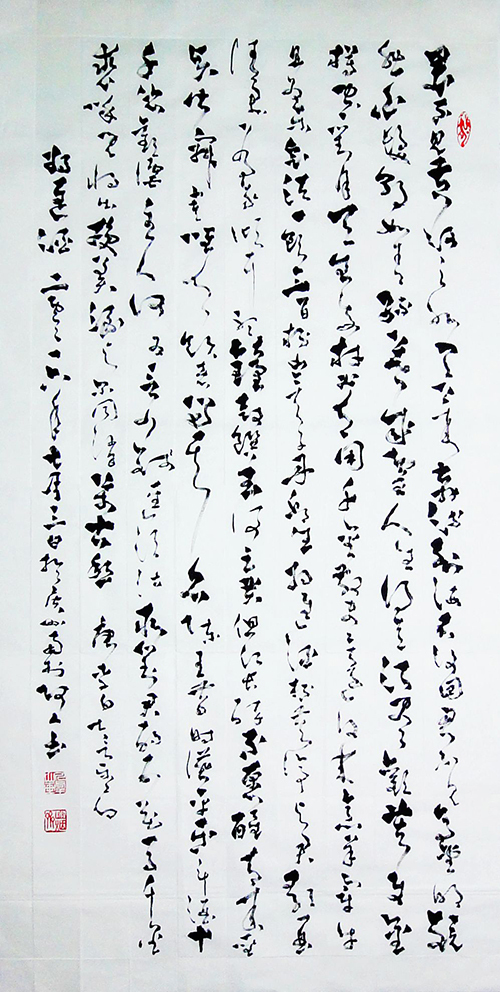 君不見黃河之水天上來奔流到海不復回君不見高堂明鏡
悲白髮朝如青絲暮成雪人生得意須盡歡莫使金
樽空對月天生我材必有用千金散盡還復來烹羊宰牛
且為樂會須一飲三百杯岑夫子丹丘生將進酒杯莫停與君歌一曲
請君為我傾耳聽鐘鼓饌玉何足貴但願長醉不願醒古來聖
賢皆寂寞唯有飲者留其名陳王昔時宴平樂斗酒十
千恣歡謔主人何為言少錢徑須沽取對君酌五花馬千金
裘呼兒將出換美酒與爾同銷萬古愁 唐李白
將進酒 二零一六年七月三日於